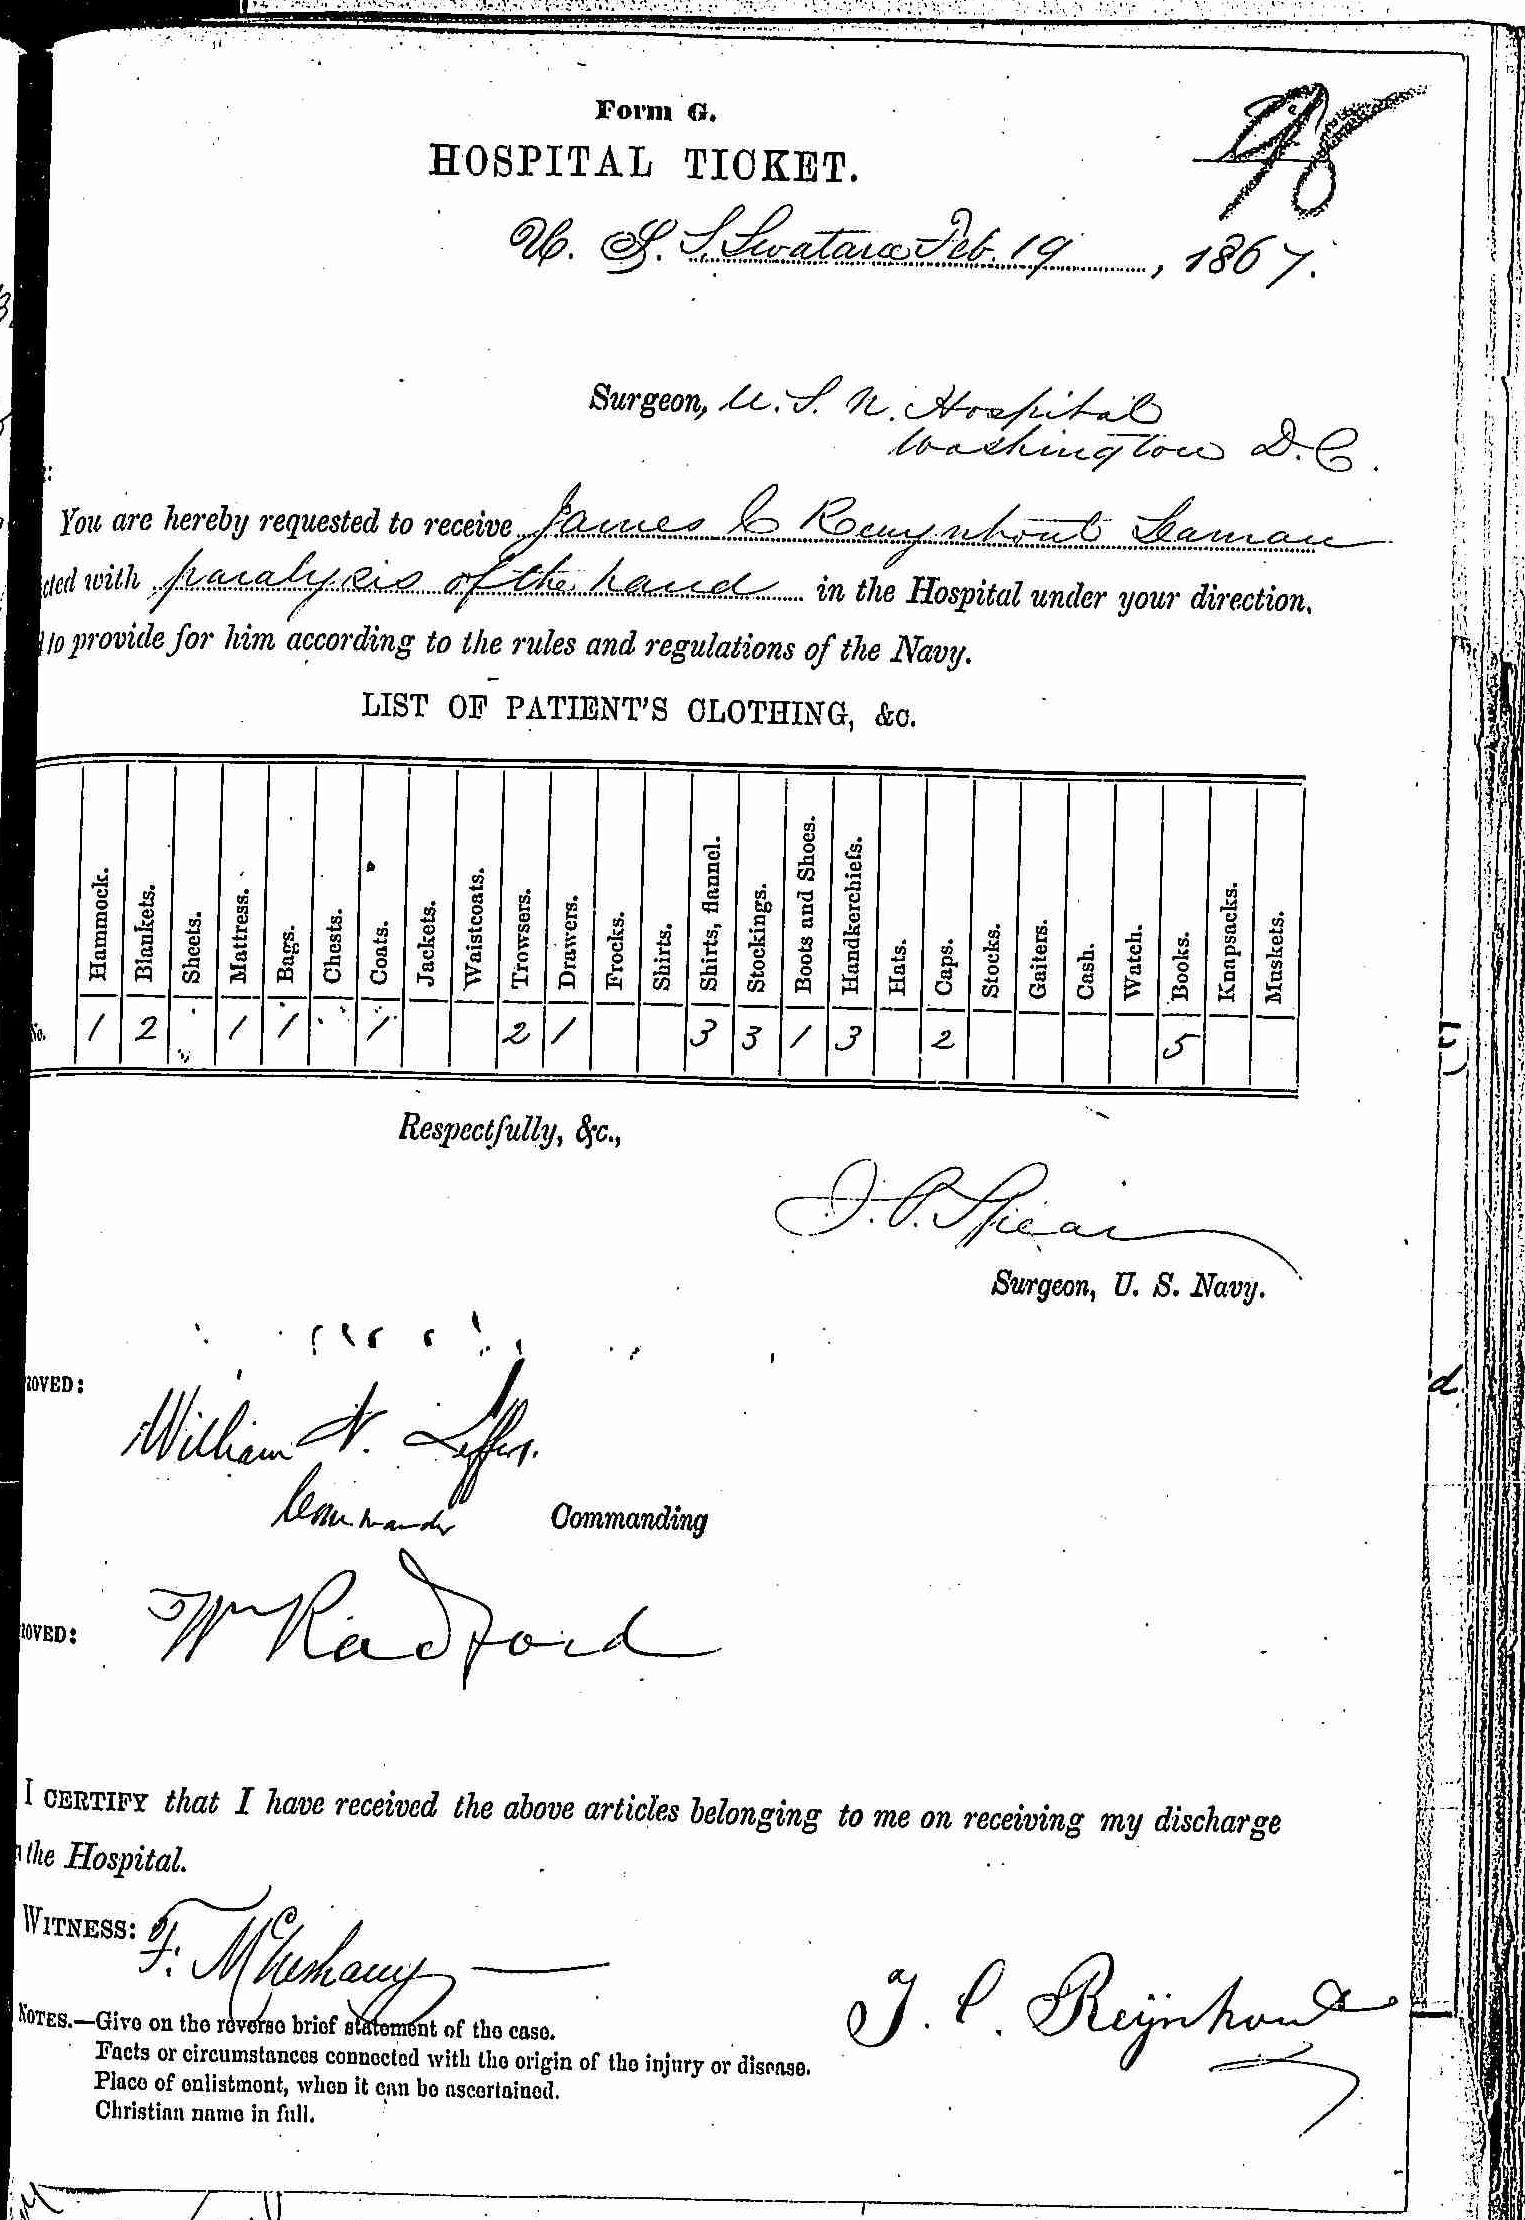 Form G.
98
HOSPITAL TICKET.
U. S. S. Swatara Feb. 19, 1867.
Surgeon, U. S. N. Hospital
Washington D. C.
You are hereby requested to receive James C Reinynhout Seaman
cted with paralysis of the hand in the Hospital under your direction,
to provide for him according to the rules and regulations of the Navy.
LIST OF PATIENT'S CLOTHING, &c.
Hammock. Blankets. Sheets. Mattress. Bags. Chests. Coats. Jackets. Waistcoats. Trowsers. Drawers. Frocks. Shirts. Shirts, flannel. Stockings. Boots and Shoes. Handkerchiefs. Hats. Caps. Stocks. Gaiters. Cash. Watch. Books. Knapsacks. Muskets.
No. 1 2 1 1 1 2 1 3 3 1 3 2 5
Respectfully, &c.,
J. P. Spear
Surgeon, U. S. Navy.
ROVED:
William N. Jeffers.
Commander Commanding
ROVED: Wm Radford
I CERTIFY that I have received the above articles belonging to me on receiving my discharge
the Hospital.
WITNESS: F.
J. C. Reÿnhout
NOTES.—Give on the reverse brief statement of the case.
Facts or circumstances connected with the origin of the injury or disease.
Place of enlistment, when it can be ascertained.
Christian name in full.